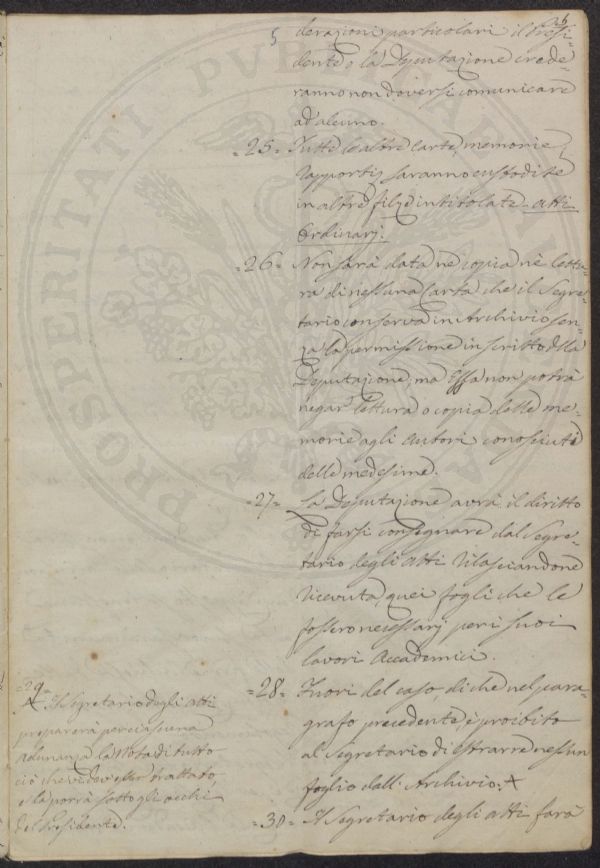 26
5
derazioni particolari il Presi-
dente o la Deputazione crede-
ranno non doversi comunicare
ad alcuno.
=25= Tutte le altre Carte, memorie,
rapporti, saranno custodite
in altre filze intitolate atti
Ordinarj.
=26= Non sarà data nè copia nè lettu-
ra di nessuna Carta che il Segre-
tario conserva in Archivio sen-
za la permissione in scritto della
Deputazione, ma Essa non potrà
negar lettura o copia delle me-
morie agli Autori conosciuti
delle medesime.
=27= La Deputazione avrà il diritto
di farsi consegnare dal Segre-
tario degli Atti rilasciandone
ricevuta, quei fogli che le
fossero necessarj per i suoi
lavori Accademici.
=28= Fuori del caso, di che nel para-
grafo precedente, è proibito
al Segretario di estrarre nessun
foglio dall' Archivio. +
=29=
+ Il Segretario degli Atti
preparerà per ciascuna
adunanza la Nota di tutto
ciò che vi dev'esser trattato,
e la porrà sotto gli occhi
del Presidente.
=30= Il Segretario degli Atti farà
PROSPERITATI PUBLICAE